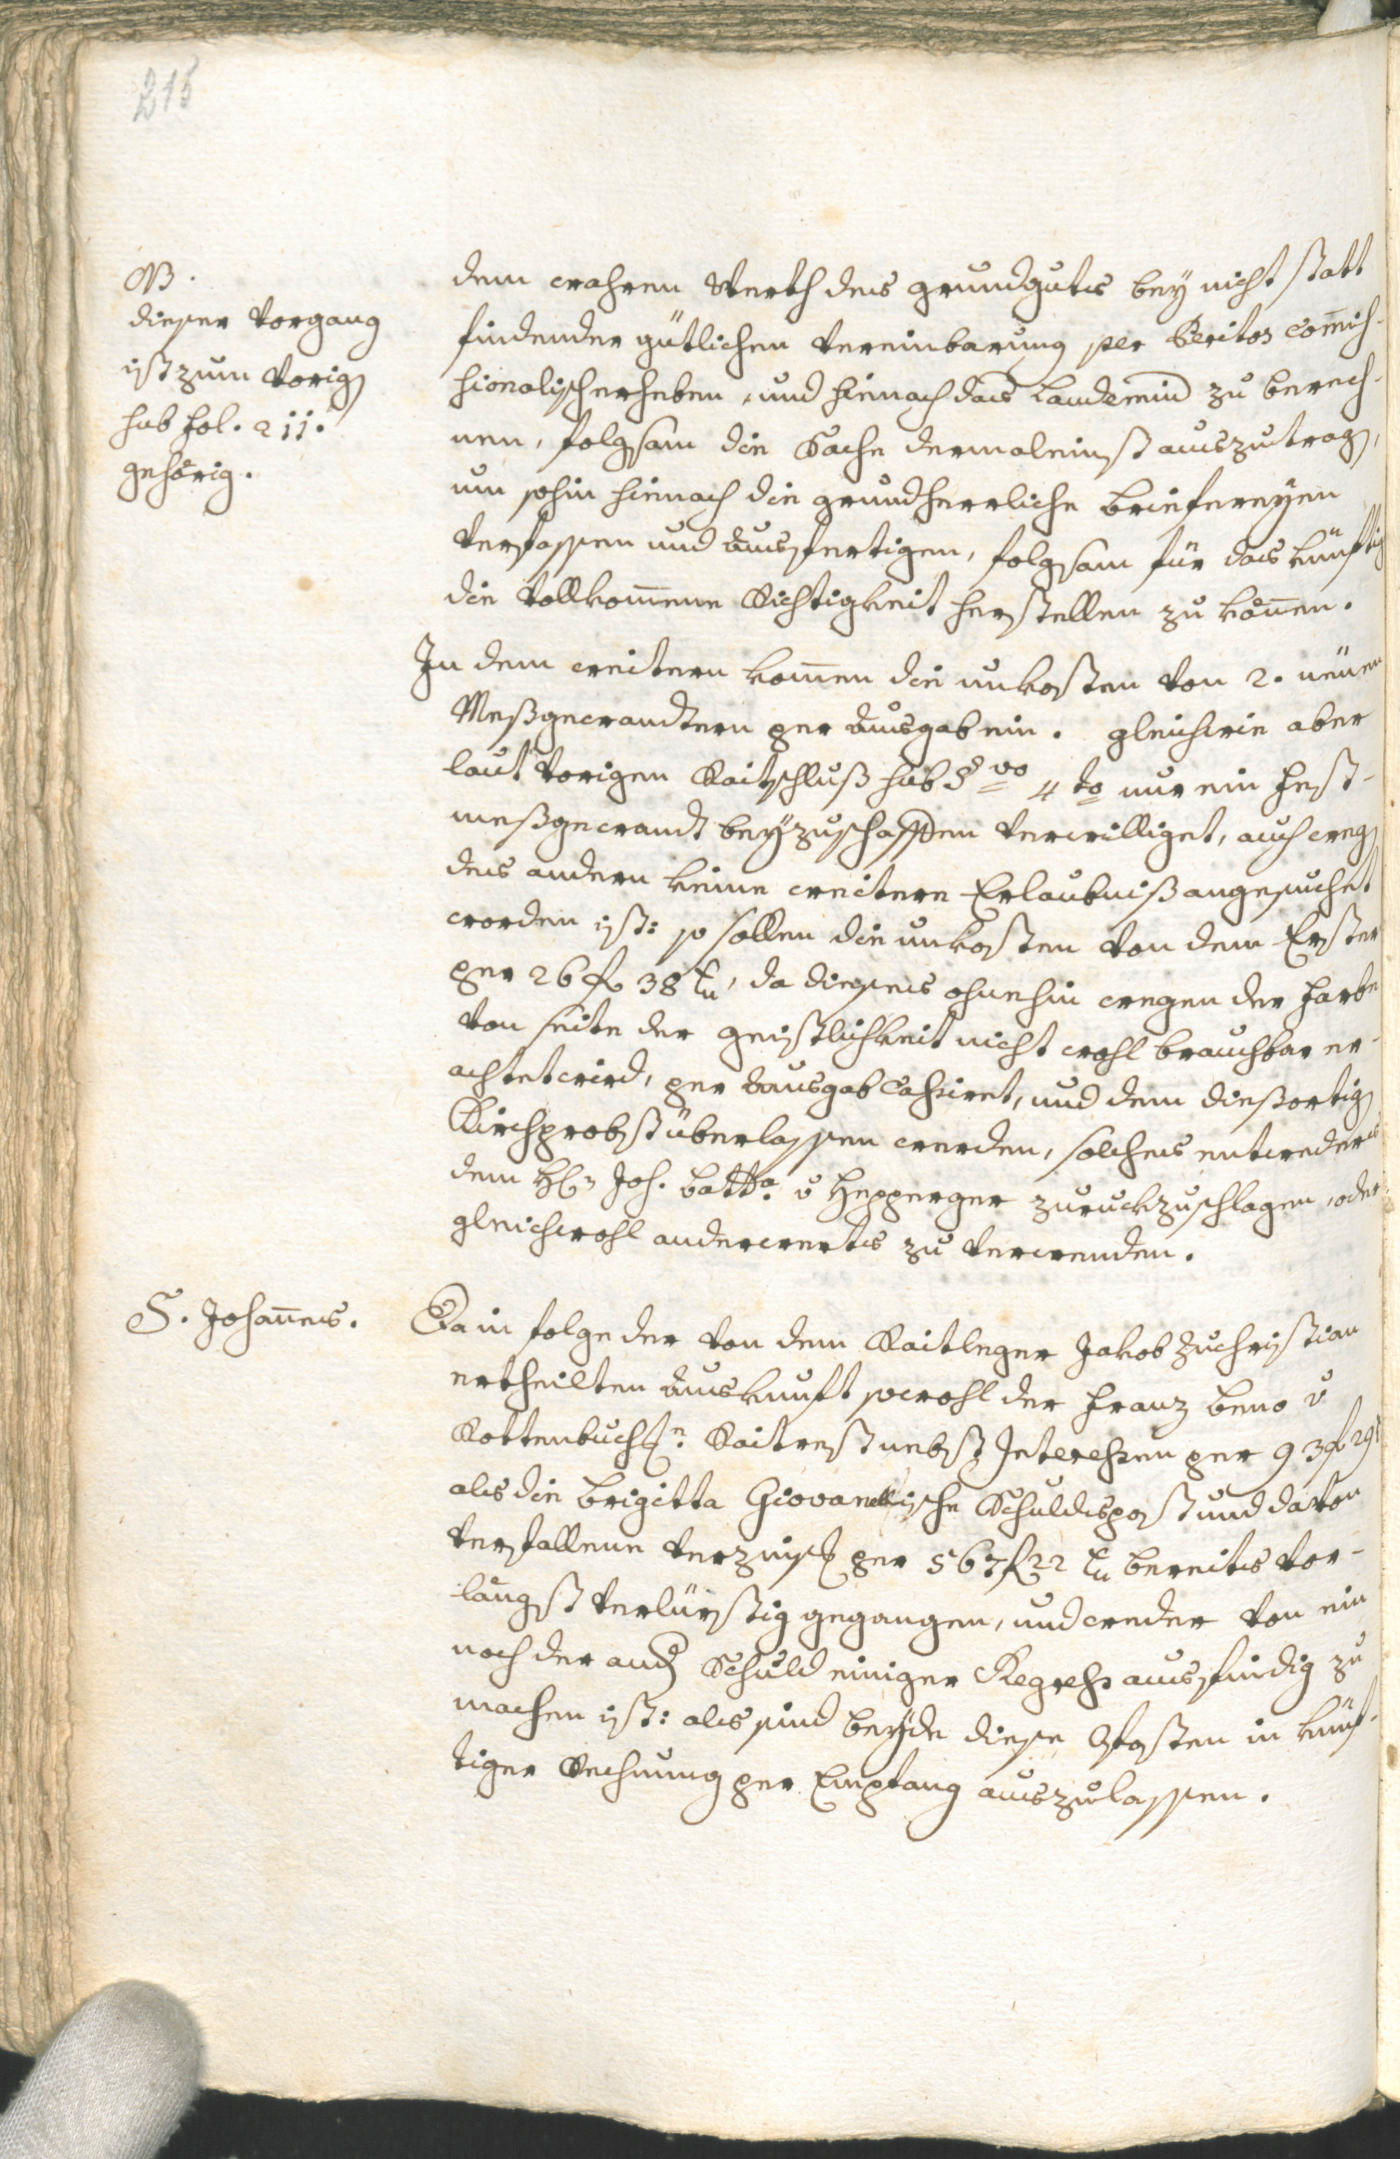 215
NB.
dieser Vorgang
ist zum Vorig
sub fol. 211.
gehörig.
dem wahren Werth des grundguts bey nicht statt
findender gütlichen Vereinbarung per Peritos Com̄iß-
sionalisch erheben, und hienach das Laudemiū zu berech-
nen, folgsam die Sache dermaleinst auszutrag,
um sohin hienach die grundherrliche briefereyen
Verfassen und Ausfertigen, folgsam für das künftig
die Vollkom̄ene Richtigkeit herstellen zu kön̄en.
In dem weitern kom̄en die unkosten von 2. neuen
Meßgewandtern per Ausgab ein. gleichwie aber
laut Vorigen Raitschluß sub §vo 4to nur ein Fest-
meßgewandt beyzuschaffen verwilliget, auch weg
des andern keine weitere Erlaubniß angesuchet
worden ist: so sollen die unkosten von dem Erster
per 26 f 38 xr, da dieses ohnehin wegen der Farbe
von seite der geistlichkeit nicht wohl brauchbar er-
achtet wird, per Ausgab Cassiret, und dem diesortig
Kirchprobst überlassen werden, solches entweders
dem H: Joh. Batta v Hepperger zuruckzuschlagen, oder
gleichwohl anderwerts zu verwenden.
S. Johañes.
Da in folge der von dem Raitleger Jakob Zuchristian
ertheilten Auskunft sowohl der Franz Beno v
Rottenbuch: Raitrest nebst Interessen per 93 f 29
als die Brigitta Giovanellische Schuldspost und davon
verfallene Verzinsg per 567 f 22 xr bereits vor-
längst verlürstig gegangen, und weder von ein
noch der and Schuld einiger Regress ausfindig zu
machen ist: als sind beyde diese Posten in künf-
tiger Rechnung per Empfang auszulassen.